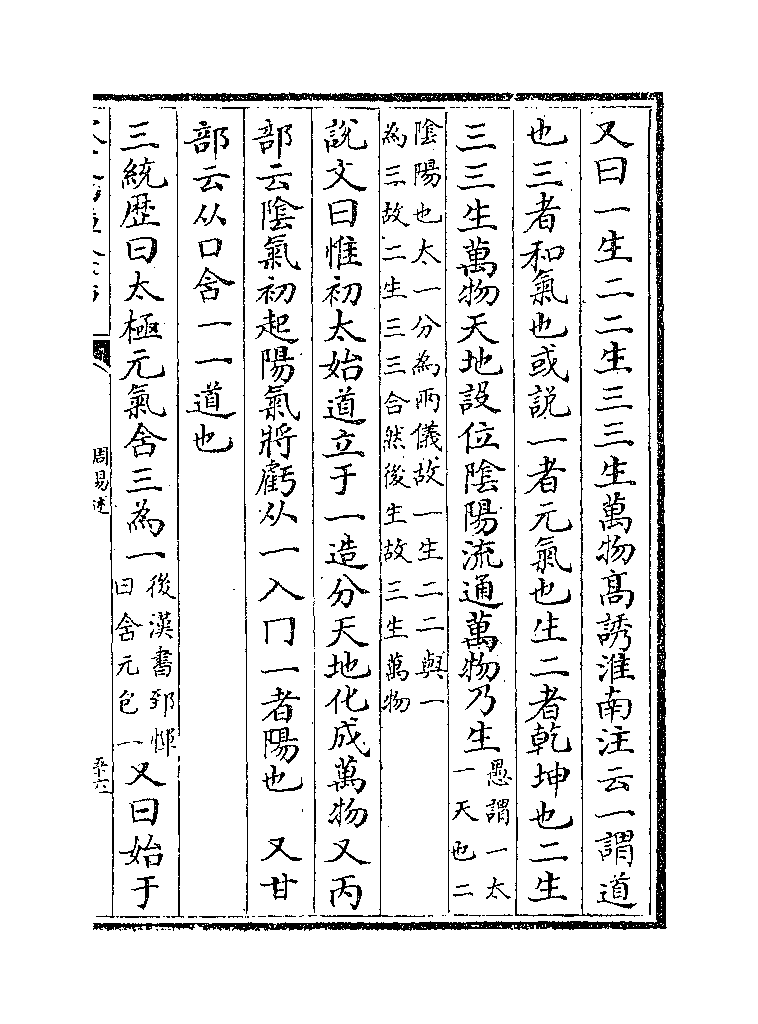 又曰一生二二生三三生萬物高誘淮南注云一謂道
也三者和氣也或説一者元氣也生二者乾坤也二生
三三生萬物天地設位陰陽流通萬物乃生愚謂一太
一天也二
陰陽也太一分為兩儀故一生二二與一
為三故二生三三合然後生故三生萬物
說文曰惟初太始道立于一造分天地化成萬物又丙
部云陰氣初起陽氣將虧从一入冂一者陽也 又甘
部云从口含一一道也
三統歴曰太極元氣含三為一後漢書郅惲
曰含元包一又曰始于
周易述